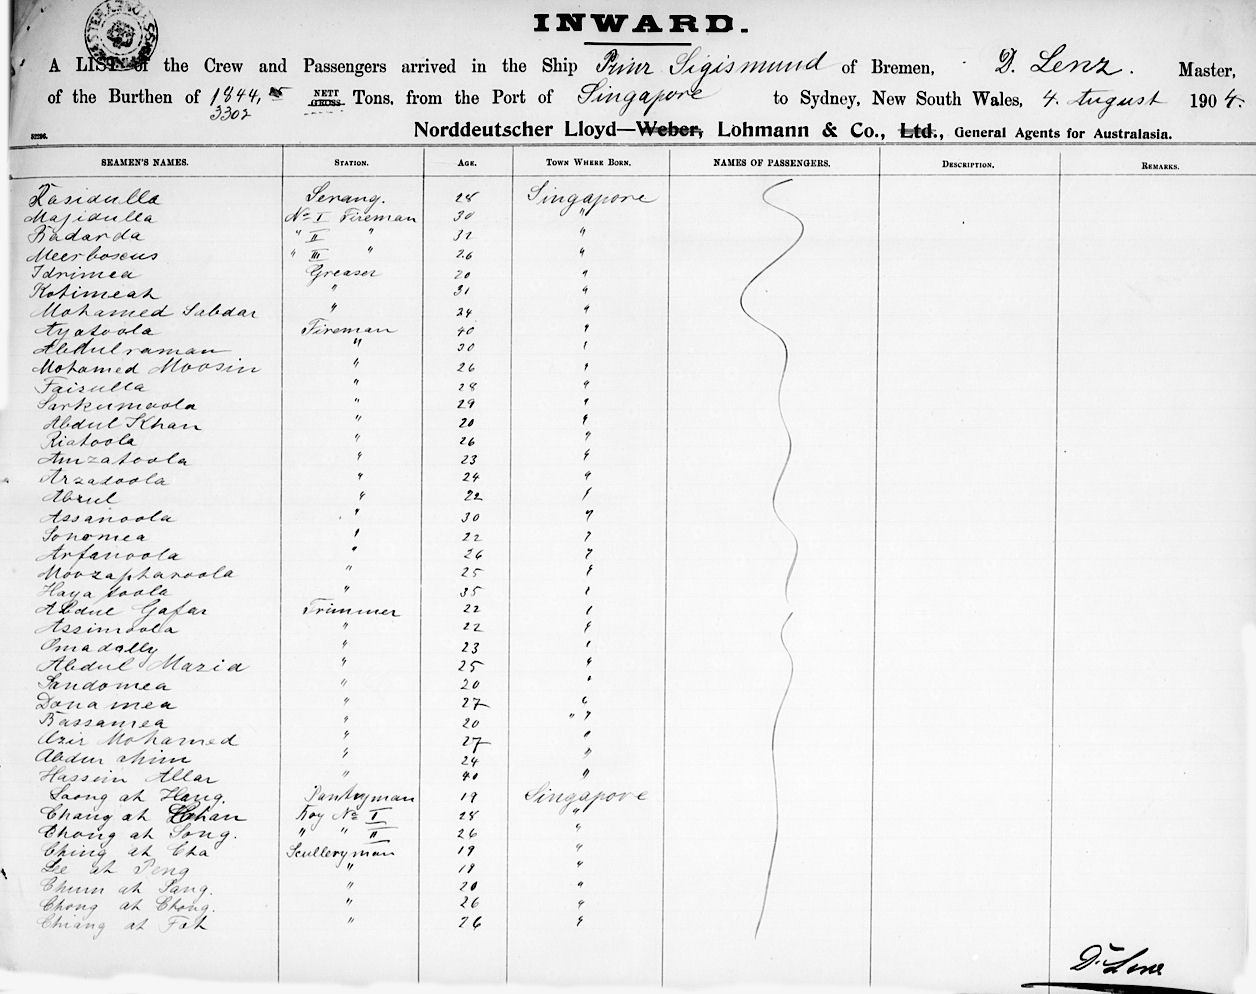 INWARD.
A LIST of the Crew and Passengers arrived in the Ship Prinz Sigismund of Bremen, D. Lenz. Master,
of the Burthen of 1844, 85 NETT GROSS Tons, from the Port of Singapore to Sydney, New South Wales, 4. August 1904.
3302
52296.
Norddeutscher Lloyd—Weber, Lohmann & Co., Ltd., General Agents for Australasia.
SEAMEN'S NAMES. STATION. AGE. TOWN WHERE BORN. NAMES OF PASSENGERS. DESCRIPTION. REMARKS.
Rasidulla Serang. 28 Singapore
Majidulla No I Fireman 30 "
Badarda " II " 32 "
Meerboscus " III " 26 "
Idrimea Greaser 20 "
Kotimeah " 31 "
Mohamed Sabdar " 24 "
Ayatoola Fireman 40 "
Abdulraman " 30 "
Mohamed Moosin " 26 "
Faisulla " 28 "
Sarkumoola " 29 "
Abdul Khan " 20 "
Riatoola " 26 "
Amzatoola " 23 "
Arzadoola " 24 "
Abrul " 22 "
Assanoola " 30 "
Sonomea " 22 "
Arfanoola " 26 "
Moozapharoola " 25 "
Hayatoola " 35 "
Abdul Gafar Trimmer 22 "
Assimoola " 22 "
Omadally " 23 "
Abdul Mazid " 25 "
Sandomea " 20 "
Donamea " 27 "
Bassamea " 20 " "
Azir Mohamed " 27 "
Abdur ahim " 24 "
Hassein Allar " 40 "
Saong ah Hang. Pantryman 19 Singapore
Chang ah Chan Boy No I 28 "
Chong ah Song. " " II 26 "
Ching ah Cha Sculleryman 19 "
Lee ah Peng " 19 "
Chum ah Sang. " 20 "
Chong ah Chong. " 26 "
Chiang ah Fat " 26 "
D. Lenz